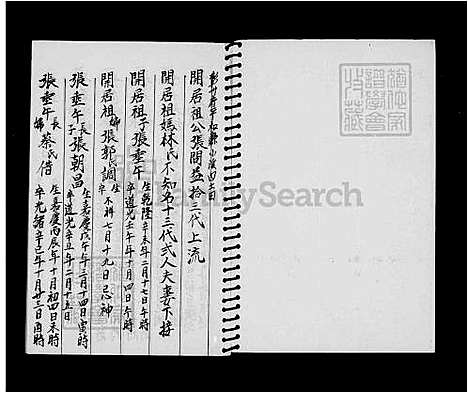 開居祖公張開益拾三代上流
開居祖媽林氏不知名十三代弍人夫妻下接
開居祖子張垂午 生乾隆辛未年二月十七日午時
卒道光壬午年十月四日午時
開居祖婦張郭氏調 生
卒不祥七月十九日忌神
張垂午長子張朝昌 生嘉慶戊午年三月十四日寅時
卒道光辛丑年二月十五日
張垂午長婦蔡氏借 生嘉慶丙辰年十月初四日未時
卒光緒辛巳年十月廿三日酉時
FamilySearch